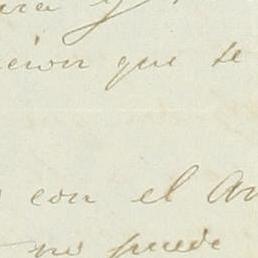 y
cion que se
con el
no puede